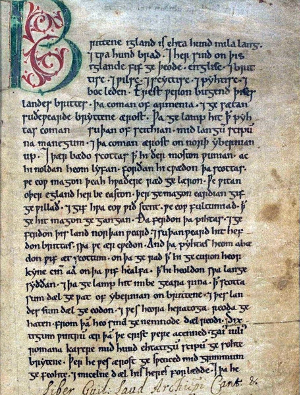 Brittene igland is ehta hund mila lang.
⁊ tƿa hund brad. ⁊ her sind on þis
iglande fif geþeode. englisc. ⁊ brit
tisc. ⁊ ƿilsc. ⁊ scyttisc. ⁊ pyhtisc. ⁊
boc leden. Erest ƿeron bugend þises
landes brittes. þa coman of armenia. ⁊ gesætan
suðeƿearde bryttene ærost. Þa gelamp hit ꝥ pyh
tas coman suþan of scithian. mid langū scipū
na manegum. ⁊ þa coman ærost on norþ ybernian
up. ⁊ þær bædo scottas ꝥ hi ðer moston ƿunian. ac
hi noldan heom lyfan. forðan hi cƿædon þa scottas.
ƿe eoƿ magon þeah hƿaðere ræd gelæron. Ƿe ƿitan
oþer egland her be easton. þer ge magon eardian gif
ge ƿillað. ⁊ gif hƿa eoƿ ƿið stent. ƿe eoƿ fultumiað. ꝥ
ge hit magon gegangan. Ða ferdon þa pihtas. ⁊ ge
ferdon þis land norþan ƿeard. ⁊ suþan ƿeard hit hef
don brittas. sƿa ƿe ær cƿedon. And þa pyhtas heom abæ
don ƿif æt scottum. on þa gerad ꝥ hi gecuron heora
kyne cin aa on þa ƿif healfa. ꝥ hi heoldon sƿa lange
syððan. ⁊ þa gelamp hit imbe geara rina. ꝥ scotta
sum dæl geƿat of ybernian on brittene. ⁊ þes lan
des sum dæl geeodon. ⁊ ƿes heora heratoga reoda ge
haten. From þā heo sind genemnode dæl reodi. Six
tigum ƿintrum ær þe crist ƿere acenned. gaius iulius
romana kasere mid hund ehtatigū scipū gesohte
brytene. Þer he ƿes ærost gesƿenced mid grimmum
gefeohte. ⁊ micelne dæl his heres forlædde. ⁊ þa he
Liber Guil: Laud Archiepi Cant: &c.